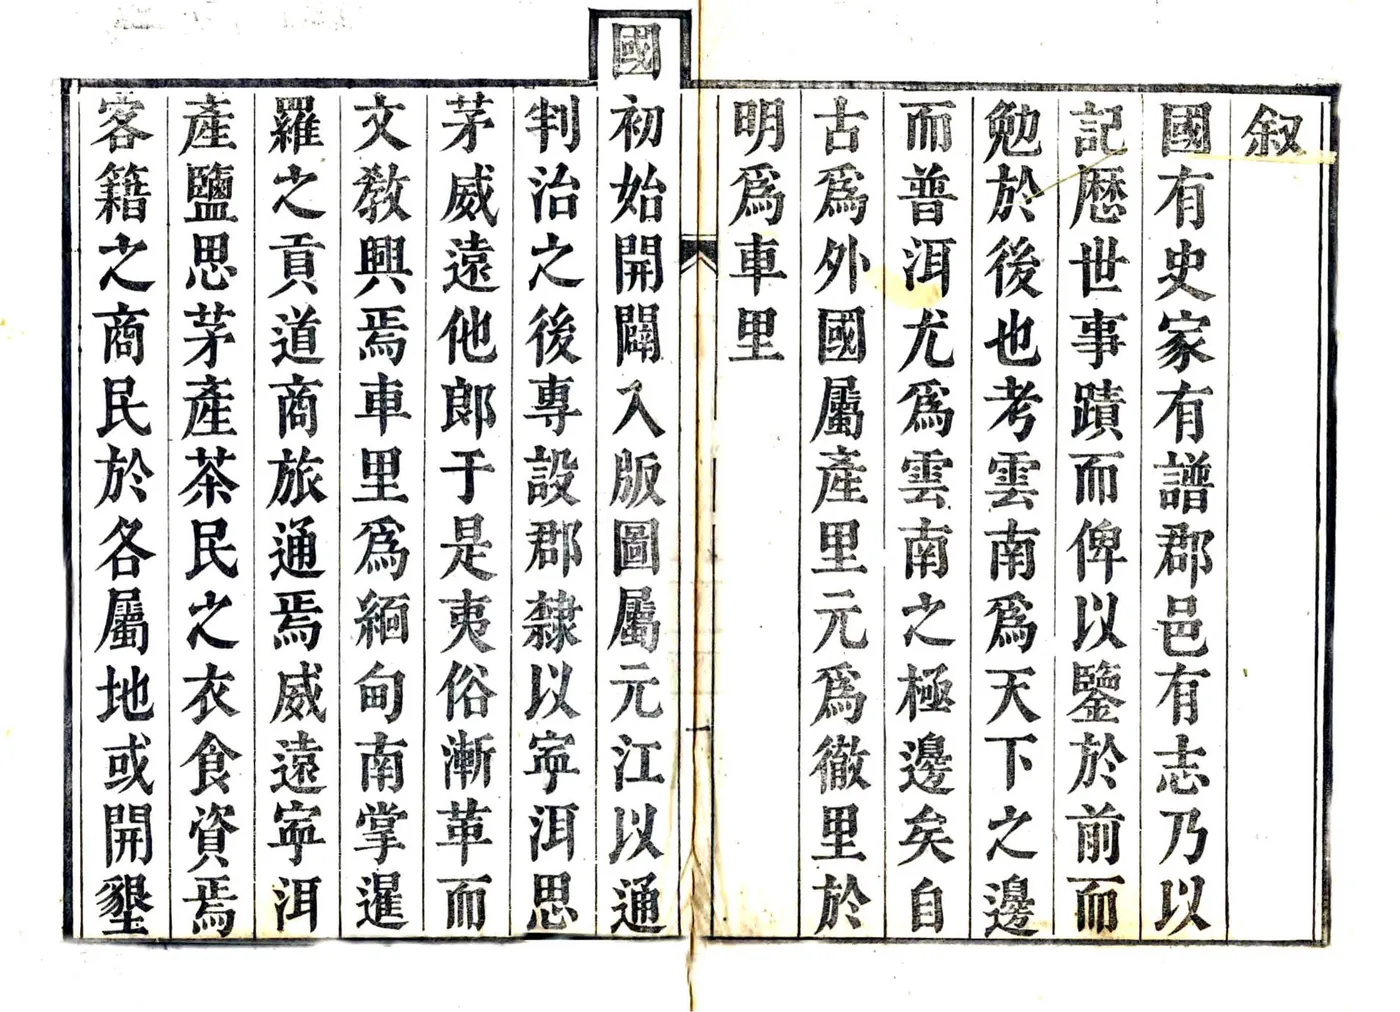 叙
國有史家有譜郡邑有志乃以
記歴世事蹟而俾以鑒於前而
勉於後也考雲南為天下之邊
而普洱尤為雲南之極邊矣自
古為外國屬產里元為徹里於
明為車里
國初始開闢入版圖屬元江以通
判治之後專設郡隸以寧洱思
茅威遠他郎于是夷俗漸革而
文教興焉車里為緬甸南掌暹
羅之貢道商旅通焉威遠寧洱
產鹽思茅產茶民之衣食資焉
客籍之商民於各屬地或開墾